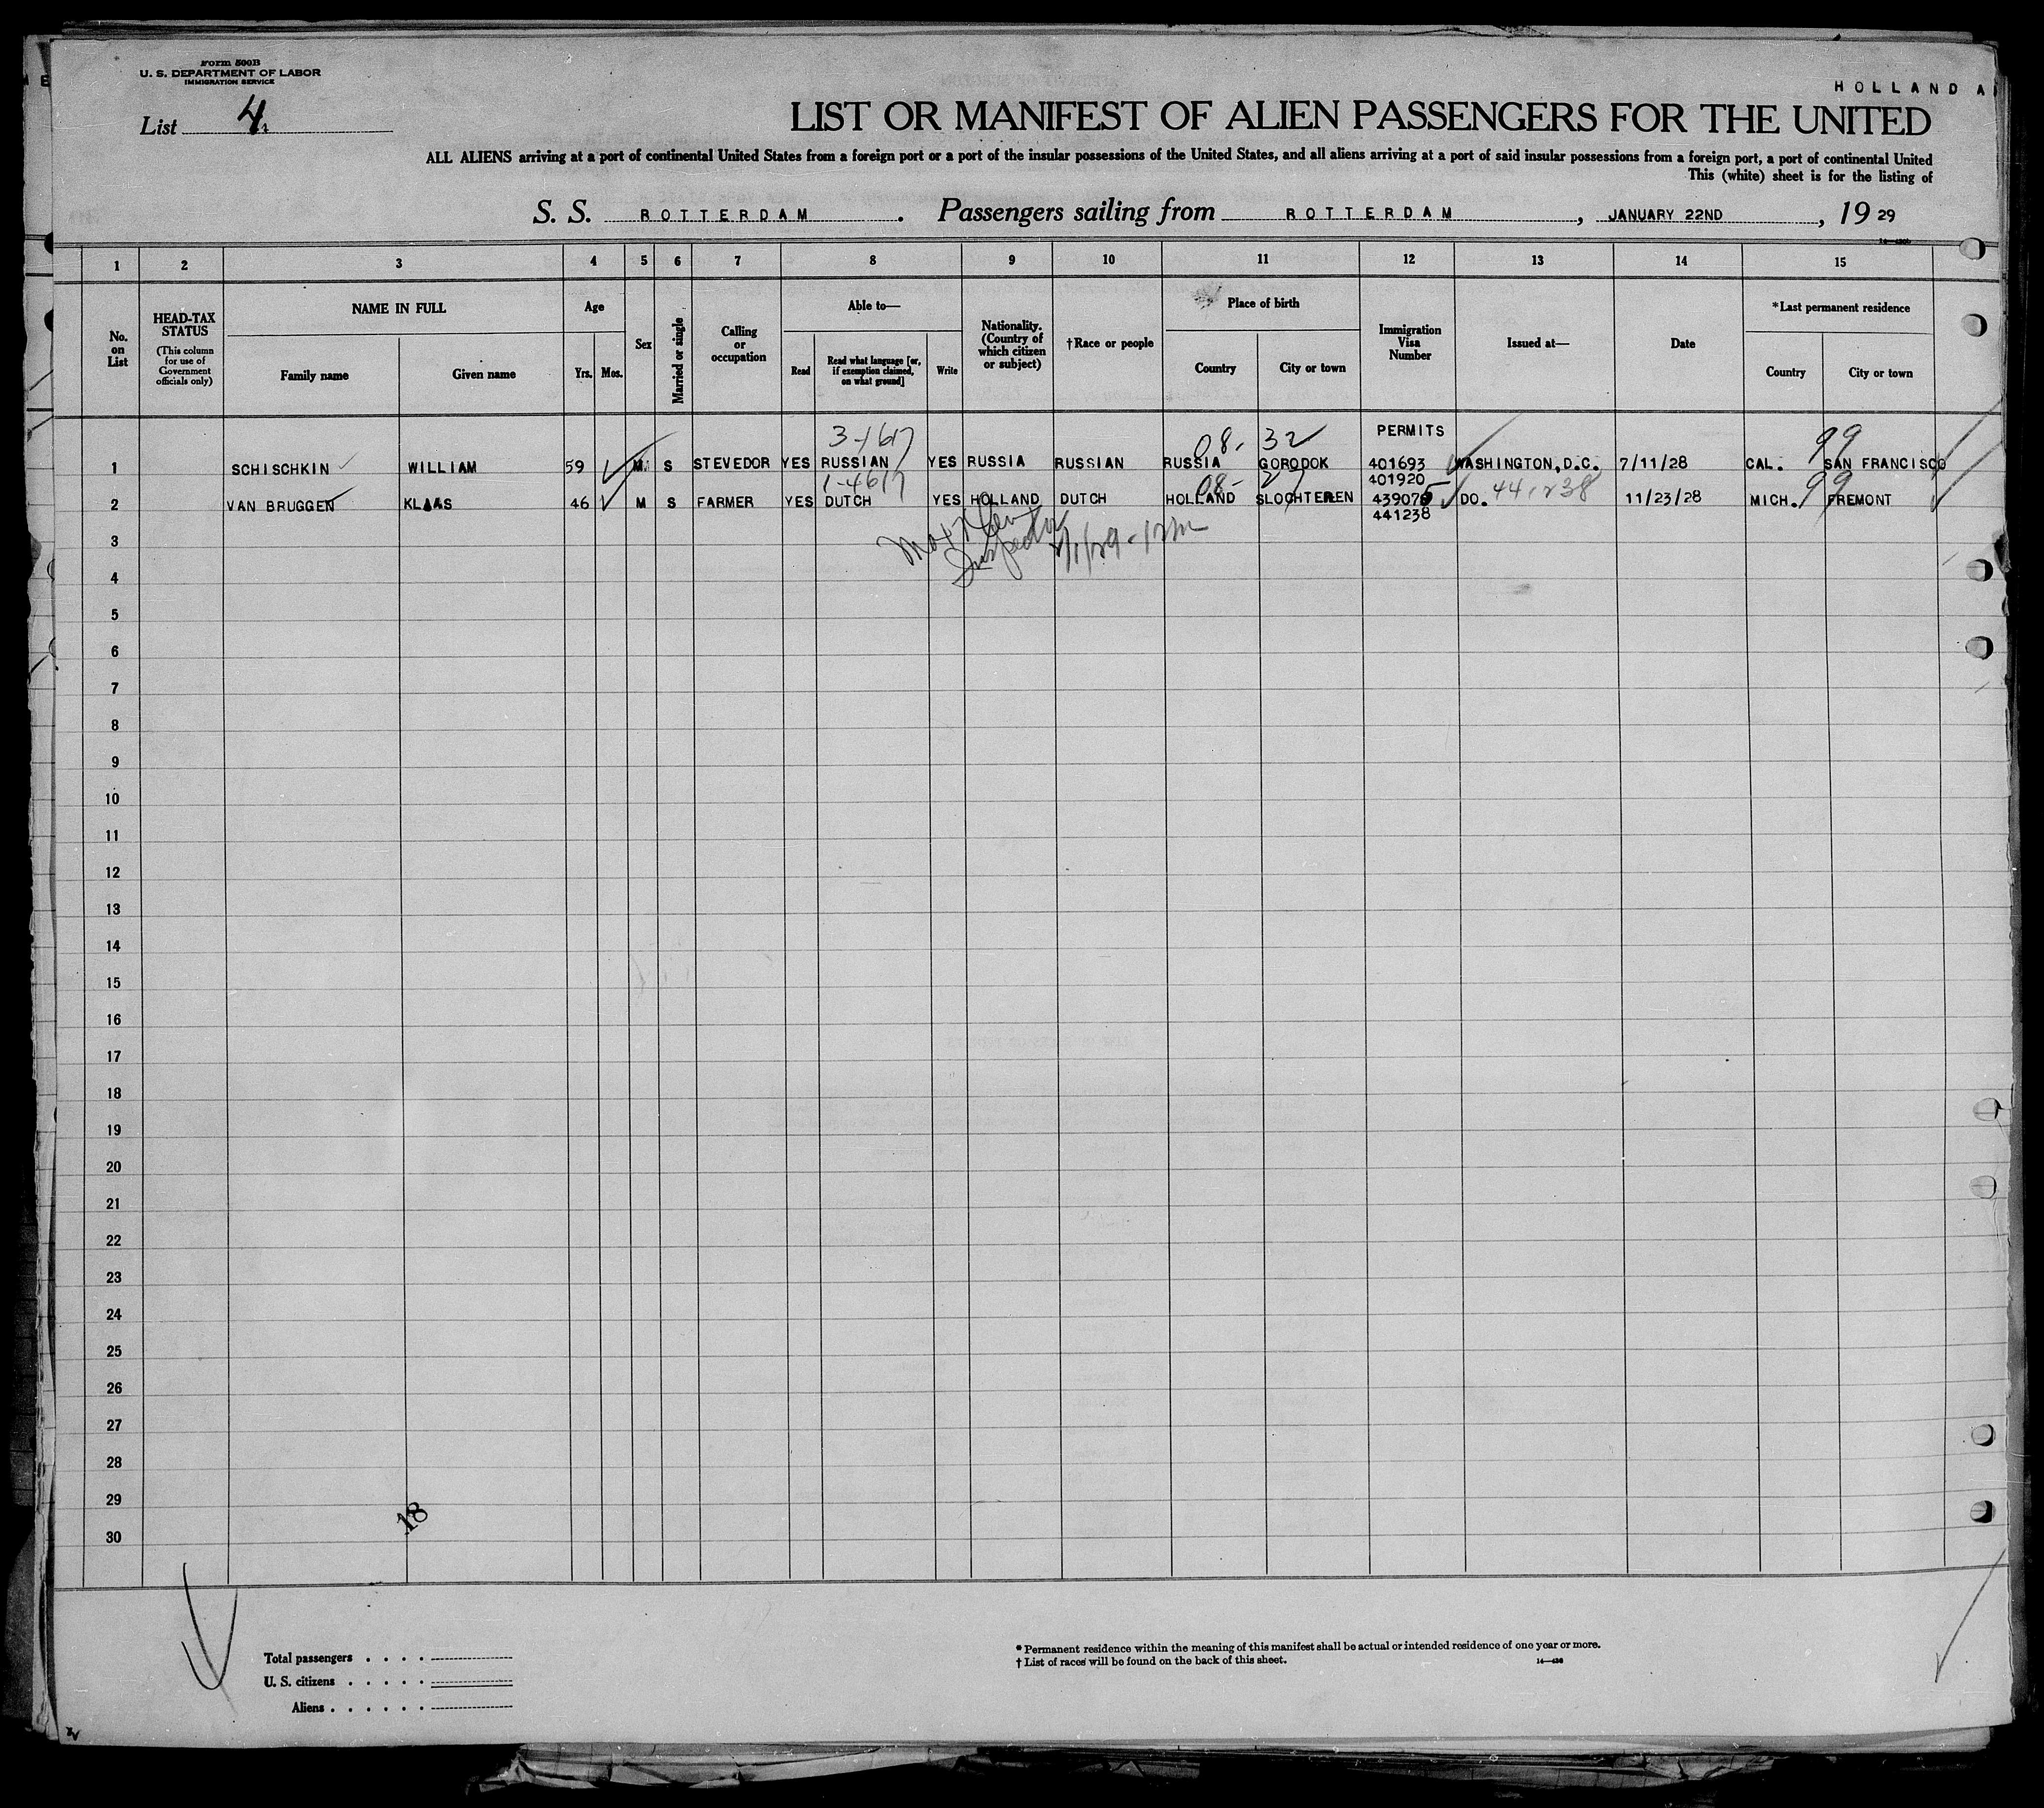 Form 500B
U. S. DEPARTMENT OF LABOR
IMMIGRATION SERVICE
HOLLAND A
List 4
LIST OR MANIFEST OF ALIEN PASSENGERS FOR THE UNITED
ALL ALIENS arriving at a port of continental United States from a foreign port or a port of the insular possessions of the United States, and all aliens arriving at a port of said insular possessions from a foreign port, a port of continental United
This (white) sheet is for the listing of
S. S. ROTTERDAM. Passengers sailing from ROTTERDAM, JANUARY 22ND, 19 29
1 2 3 4 5 6 7 8 9 10 11 12 13 14 15
No. on List
HEAD-TAX STATUS
(This column for use of Government officials only)
NAME IN FULL
Family name
Given name
Age
Yrs.
Mos.
Sex
Married or single
Calling or occupation
Able to—
Read
Read what language [or, if exemption claimed, on what ground]
Write
Nationality. (Country of which citizen or subject)
†Race or people
Place of birth
Country
City or town
Immigration Visa Number
Issued at—
Date
*Last permanent residence
Country
City or town
3-1617 08- 32 PERMITS 99
1 SCHISCHKIN WILLIAM 59 M S STEVEDOR YES RUSSIAN YES RUSSIA RUSSIAN RUSSIA GORODOK 401693 WASHINGTON,D.C. 7/11/28 CAL. SAN FRANCISCO
1-4617 08- 27 401920 99
2 VAN BRUGGEN KLAAS 46 M S FARMER YES DUTCH YES HOLLAND DUTCH HOLLAND SLOCHTEREN 439075 DO. 441238 11/23/28 MICH. FREMONT
441238
Inspector
3
4
5
6
7
8
9
10
11
12
13
14
15
16
17
18
19
20
21
22
23
24
25
26
27
28
29
30
18
Total passengers . . . .
U. S. citizens . . . . .
Aliens . . . . . .
* Permanent residence within the meaning of this manifest shall be actual or intended residence of one year or more.
† List of races will be found on the back of this sheet.